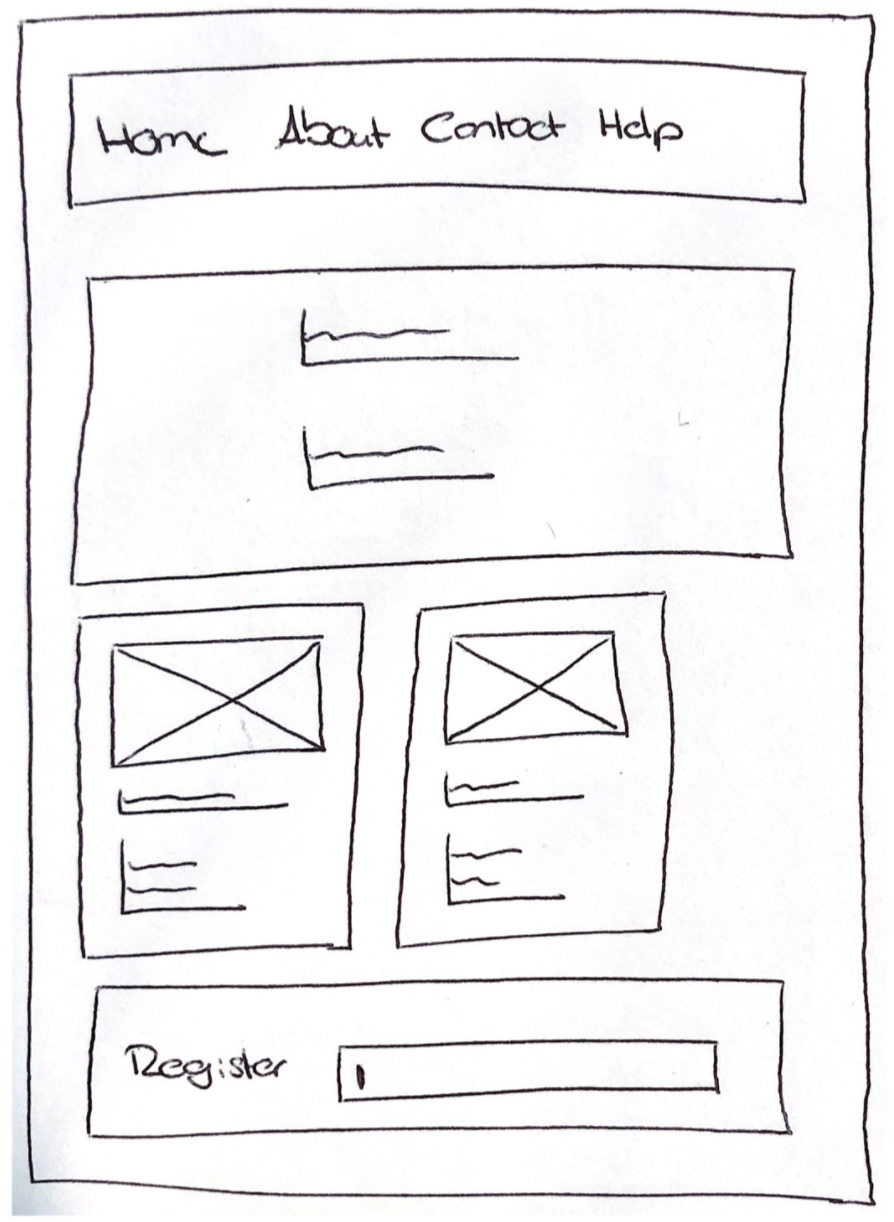 Home About Contact Help
Register